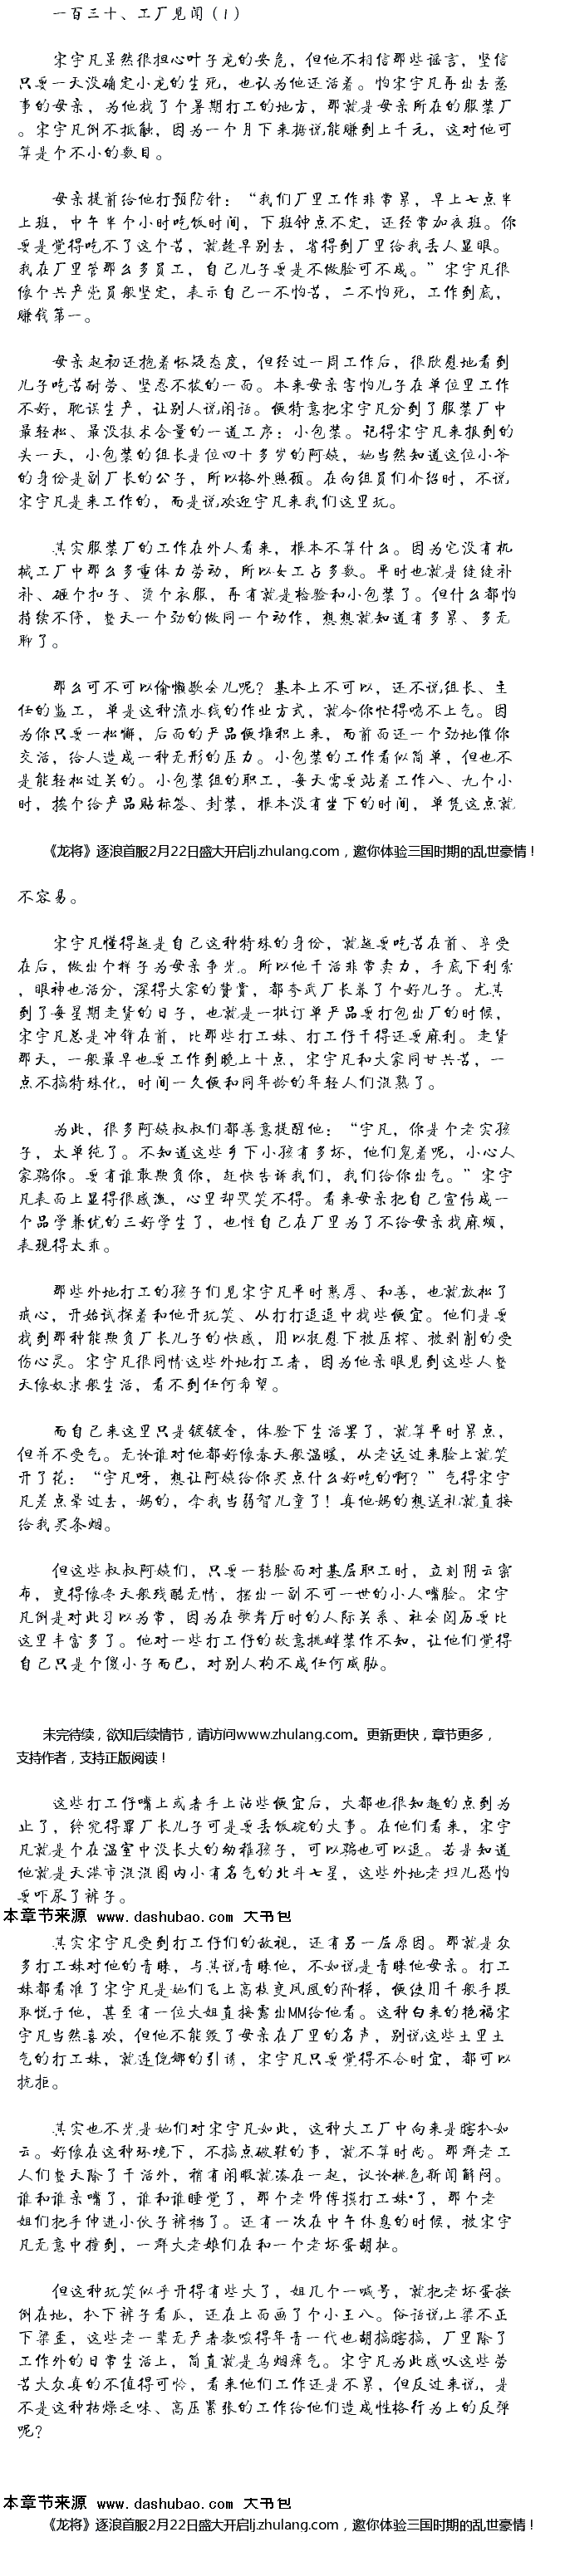 一百三十、工厂见闻（1）
宋宇凡虽然很担心叶子龙的安危，但他不相信那些谣言，坚信
只要一天没确定小龙的生死，也认为他还活着。怕宋宇凡再出去惹
事的母亲，为他找了个暑期打工的地方，那就是母亲所在的服装厂
。宋宇凡倒不抵触，因为一个月下来据说能赚到上千元，这对他可
算是个不小的数目。
母亲提前给他打预防针：“我们厂里工作非常累，早上七点半
上班，中午半个小时吃饭时间，下班钟点不定，还经常加夜班。你
要是觉得吃不了这个苦，就趁早别去，省得到厂里给我丢人显眼。
我在厂里管那么多员工，自己儿子要是不做脸可不成。”宋宇凡很
像个共产党员般坚定，表示自己一不怕苦，二不怕死，工作到底，
赚钱第一。
母亲起初还抱着怀疑态度，但经过一周工作后，很欣慰地看到
儿子吃苦耐劳、坚忍不拔的一面。本来母亲害怕儿子在单位里工作
不好，耽误生产，让别人说闲话。便特意把宋宇凡分到了服装厂中
最轻松、最没技术含量的一道工序：小包装。记得宋宇凡来报到的
头一天，小包装的组长是位四十多岁的阿姨，她当然知道这位小爷
的身份是副厂长的公子，所以格外照顾。在向组员们介绍时，不说
宋宇凡是来工作的，而是说欢迎宇凡来我们这里玩。
其实服装厂的工作在外人看来，根本不算什么。因为它没有机
械工厂中那么多重体力劳动，所以女工占多数。平时也就是缝缝补
补、砸个扣子、烫个衣服，再有就是检验和小包装了。但什么都怕
持续不停，整天一个劲的做同一个动作，想想就知道有多累、多无
聊了。
那么可不可以偷懒歇会儿呢？基本上不可以，还不说组长、主
任的监工，单是这种流水线的作业方式，就令你忙得喘不上气。因
为你只要一松懈，后面的产品便堆积上来，而前面还一个劲地催你
交活，给人造成一种无形的压力。小包装的工作看似简单，但也不
是能轻松过关的。小包装组的职工，每天需要站着工作八、九个小
时，挨个给产品贴标签、封装，根本没有坐下的时间，单凭这点就
《龙将》逐浪首服2月22日盛大开启lj.zhulang.com，邀你体验三国时期的乱世豪情！
不容易。
宋宇凡懂得越是自己这种特殊的身份，就越要吃苦在前、享受
在后，做出个样子为母亲争光。所以他干活非常卖力，手底下利索
，眼神也活分，深得大家的赞赏，都夸武厂长养了个好儿子。尤其
到了每星期走货的日子，也就是一批订单产品要打包出厂的时候，
宋宇凡总是冲锋在前，比那些打工妹、打工仔干得还要麻利。走货
那天，一般最早也要工作到晚上十点，宋宇凡和大家同甘共苦，一
点不搞特殊化，时间一久便和同年龄的年轻人们混熟了。
为此，很多阿姨叔叔们都善意提醒他：“宇凡，你是个老实孩
子，太单纯了。不知道这些乡下小孩有多坏，他们鬼着呢，小心人
家骗你。要有谁敢欺负你，赶快告诉我们，我们给你出气。”宋宇
凡表面上显得很感激，心里却哭笑不得。看来母亲把自己宣传成一
个品学兼优的三好学生了，也怪自己在厂里为了不给母亲找麻烦，
表现得太乖。
那些外地打工的孩子们见宋宇凡平时熟厚、和善，也就放松了
戒心，开始试探着和他开玩笑、从打打逗逗中找些便宜。他们是要
找到那种能欺负厂长儿子的快感，用以抚慰下被压榨、被剥削的受
伤心灵。宋宇凡很同情这些外地打工者，因为他亲眼见到这些人整
天像奴隶般生活，看不到任何希望。
而自己来这里只是镀镀金，体验下生活罢了，就算平时累点，
但并不受气。无论谁对他都好像春天般温暖，从老远过来脸上就笑
开了花：“宇凡呀，想让阿姨给你买点什么好吃的啊？”气得宋宇
凡差点晕过去，妈的，拿我当弱智儿童了！真他妈的想送礼就直接
给我买条烟。
但这些叔叔阿姨们，只要一转脸面对基层职工时，立刻阴云密
布，变得像冬天般残酷无情，摆出一副不可一世的小人嘴脸。宋宇
凡倒是对此习以为常，因为在歌舞厅时的人际关系、社会阅历要比
这里丰富多了。他对一些打工仔的故意挑衅装作不知，让他们觉得
自己只是个傻小子而已，对别人构不成任何威胁。
未完待续，欲知后续情节，请访问www.zhulang.com。更新更快，章节更多，
支持作者，支持正版阅读！
这些打工仔嘴上或者手上沾些便宜后，大都也很知趣的点到为
止了，终究得罪厂长儿子可是要丢饭碗的大事。在他们看来，宋宇
凡就是个在温室中没长大的幼稚孩子，可以骗也可以逗。若是知道
他就是天港市混混圈内小有名气的北斗七星，这些外地老坦儿恐怕
要吓尿了裤子。
本章节来源 www.dashubao.com 大书包
其实宋宇凡受到打工仔们的敌视，还有另一层原因。那就是众
多打工妹对他的青睐，与其说青睐他，不如说是青睐他母亲。打工
妹都看准了宋宇凡是她们飞上高枝变凤凰的阶梯，便使用千般手段
取悦于他，甚至有一位大姐直接露出MM给他看。这种白来的艳福宋
宇凡当然喜欢，但他不能毁了母亲在厂里的名声，别说这些土里土
气的打工妹，就连倪娜的引诱，宋宇凡只要觉得不合时宜，都可以
抗拒。
其实也不光是她们对宋宇凡如此，这种大工厂中向来是瞎扒如
云。好像在这种环境下，不搞点破鞋的事，就不算时尚。那群老工
人们整天除了干活外，稍有闲暇就凑在一起，议论桃色新闻解闷。
谁和谁亲嘴了，谁和谁睡觉了，那个老师傅摸打工妹·了，那个老
姐们把手伸进小伙子裤裆了。还有一次在中午休息的时候，被宋宇
凡无意中撞到，一群大老娘们在和一个老坏蛋胡扯。
但这种玩笑似乎开得有些大了，姐几个一喊号，就把老坏蛋按
倒在地，扒下裤子看瓜，还在上面画了个小王八。俗话说上梁不正
下梁歪，这些老一辈无产者教唆得年青一代也胡搞瞎搞，厂里除了
工作外的日常生活上，简直就是乌烟瘴气。宋宇凡为此感叹这些劳
苦大众真的不值得可怜，看来他们工作还是不累，但反过来说，是
不是这种枯燥乏味、高压紧张的工作给他们造成性格行为上的反弹
呢？
本章节来源 www.dashubao.com 大书包
《龙将》逐浪首服2月22日盛大开启lj.zhulang.com，邀你体验三国时期的乱世豪情！